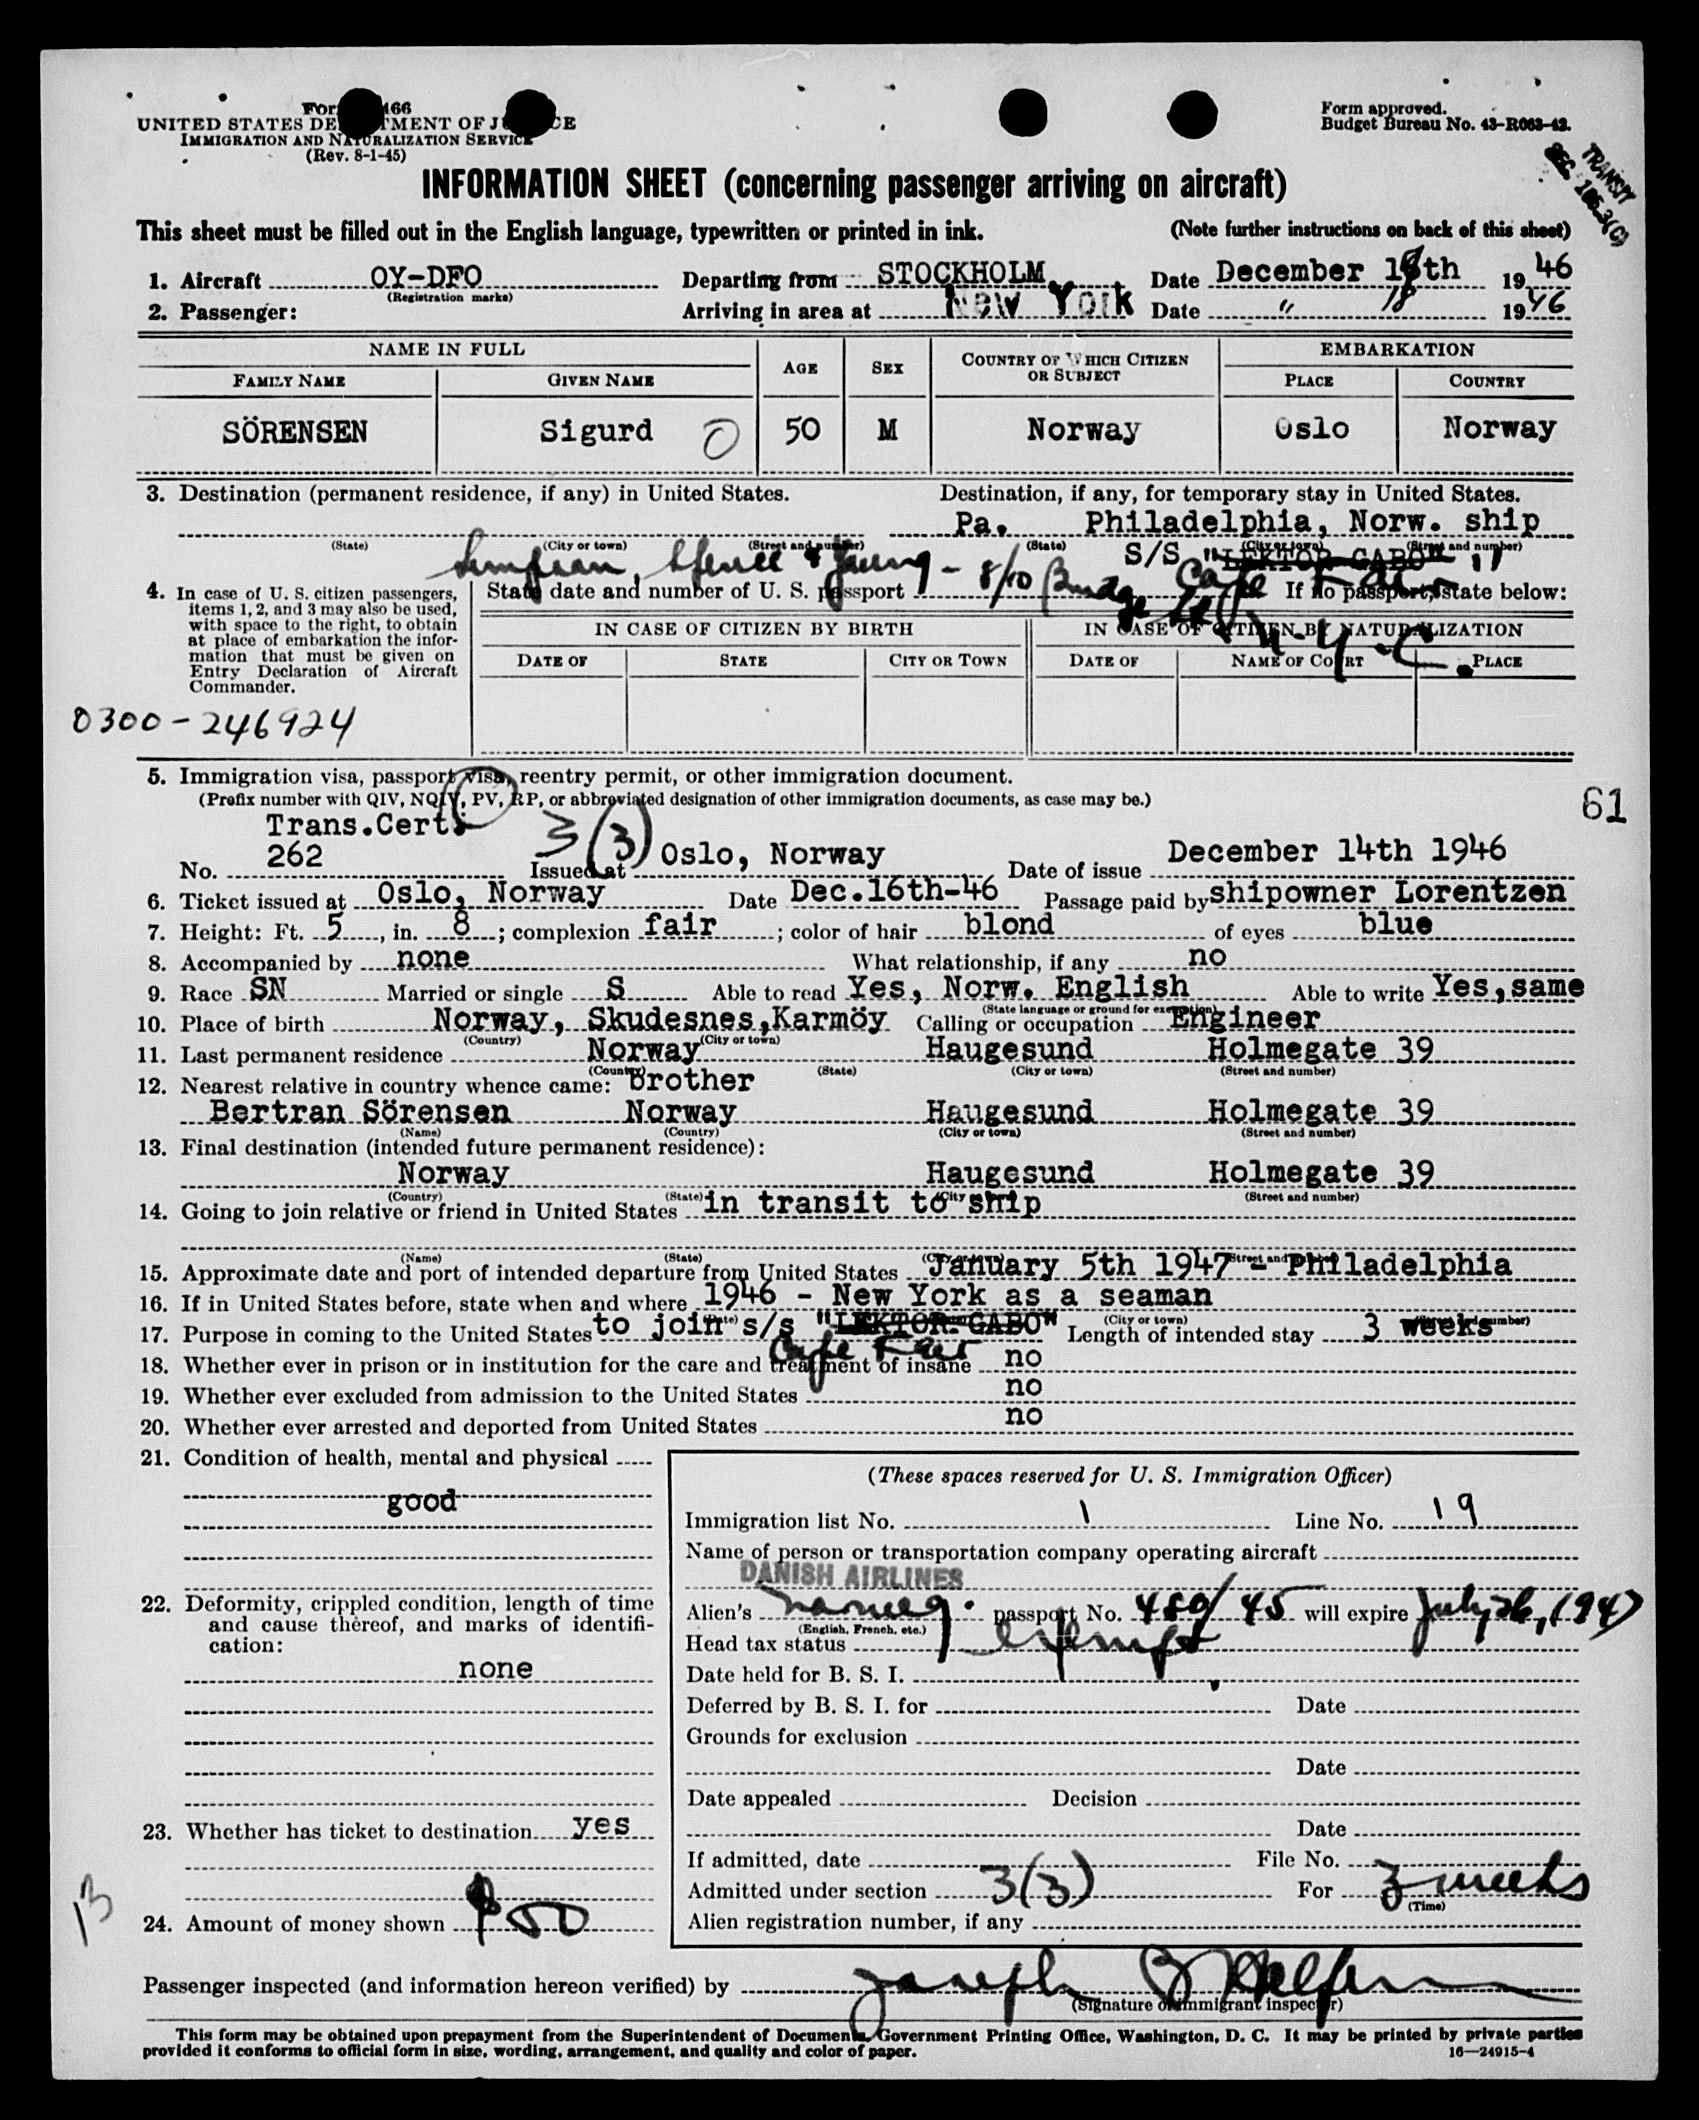 Form 466
UNITED STATES DEPARTMENT OF JUSTICE
IMMIGRATION AND NATURALIZATION SERVICE
(Rev. 8-1-45)
Form approved.
Budget Bureau No. 43-R063-42.
TRANSIT
SEC. 165.3(C)
INFORMATION SHEET (concerning passenger arriving on aircraft)
This sheet must be filled out in the English language, typewritten or printed in ink. (Note further instructions on back of this sheet)
1. Aircraft OY-DFO Departing from STOCKHOLM Date December 18th 1946
(Registration marks)
2. Passenger: Arriving in area at New York Date " 18 1946
NAME IN FULL AGE SEX COUNTRY OF WHICH CITIZEN OR SUBJECT EMBARKATION
FAMILY NAME GIVEN NAME PLACE COUNTRY
SÖRENSEN Sigurd 0 50 M Norway Oslo Norway
3. Destination (permanent residence, if any) in United States. Destination, if any, for temporary stay in United States.
Pa. Philadelphia, Norw. ship
(State) (City or town) (Street and number) (State) (City or town) (Street and number)
S/S "LEKTOR GABO"
Simpson, Spence & Young - 8/10 Bridge St Cape
N.Y.C.
4. In case of U. S. citizen passengers, items 1, 2, and 3 may also be used, with space to the right, to obtain at place of embarkation the information that must be given on Entry Declaration of Aircraft Commander.
State date and number of U. S. passport If no passport, state below:
IN CASE OF CITIZEN BY BIRTH IN CASE OF CITIZEN BY NATURALIZATION
DATE OF STATE CITY OR TOWN DATE OF NAME OF COURT PLACE
0300-246924
5. Immigration visa, passport visa, reentry permit, or other immigration document.
(Prefix number with QIV, NQIV, PV, RP, or abbreviated designation of other immigration documents, as case may be.)
61
Trans.Cert. 3(3)
No. 262 Issued at Oslo, Norway Date of issue December 14th 1946
6. Ticket issued at Oslo, Norway Date Dec.16th-46 Passage paid by shipowner Lorentzen
7. Height: Ft. 5, in. 8; complexion fair; color of hair blond of eyes blue
8. Accompanied by none What relationship, if any no
9. Race SN Married or single S Able to read Yes, Norw. English Able to write Yes,same
(State language or ground for exemption)
10. Place of birth Norway, Skudesnes,Karmöy Calling or occupation Engineer
(Country) (City or town)
11. Last permanent residence Norway Haugesund Holmegate 39
(Country) (State) (City or town) (Street and number)
12. Nearest relative in country whence came: brother
Bertran Sörensen Norway Haugesund Holmegate 39
(Name) (Country) (City or town) (Street and number)
13. Final destination (intended future permanent residence):
Norway Haugesund Holmegate 39
(Country) (State) (City (Street and number)
14. Going to join relative or friend in United States in transit to ship
(Name) (State) (City or town) (Street and number)
15. Approximate date and port of intended departure from United States January 5th 1947 - Philadelphia
16. If in United States before, state when and where 1946 - New York as a seaman
(Date) (City or town) (Street and number)
17. Purpose in coming to the United States to join s/s "LEKTOR GABO" Length of intended stay 3 weeks
Cape
18. Whether ever in prison or in institution for the care and treatment of insane no
19. Whether ever excluded from admission to the United States no
20. Whether ever arrested and deported from United States no
21. Condition of health, mental and physical
good
22. Deformity, crippled condition, length of time and cause thereof, and marks of identification:
none
23. Whether has ticket to destination yes
13
24. Amount of money shown $50
(These spaces reserved for U. S. Immigration Officer)
Immigration list No. 1 Line No. 19
Name of person or transportation company operating aircraft
DANISH AIRLINES
Alien's Norweg. passport No. 480/45 will expire July 26, 1947
(English, French, etc.)
Head tax status exempt
Date held for B. S. I.
Deferred by B. S. I. for Date
Grounds for exclusion
Date
Date appealed Decision
Date
If admitted, date File No.
Admitted under section 3(3) For 3 weeks
(Time)
Alien registration number, if any
Passenger inspected (and information hereon verified) by Joseph B
(Signature of immigrant inspector)
This form may be obtained upon prepayment from the Superintendent of Documents, Government Printing Office, Washington, D. C. It may be printed by private parties
provided it conforms to official form in size, wording, arrangement, and quality and color of paper. 16—24915-4